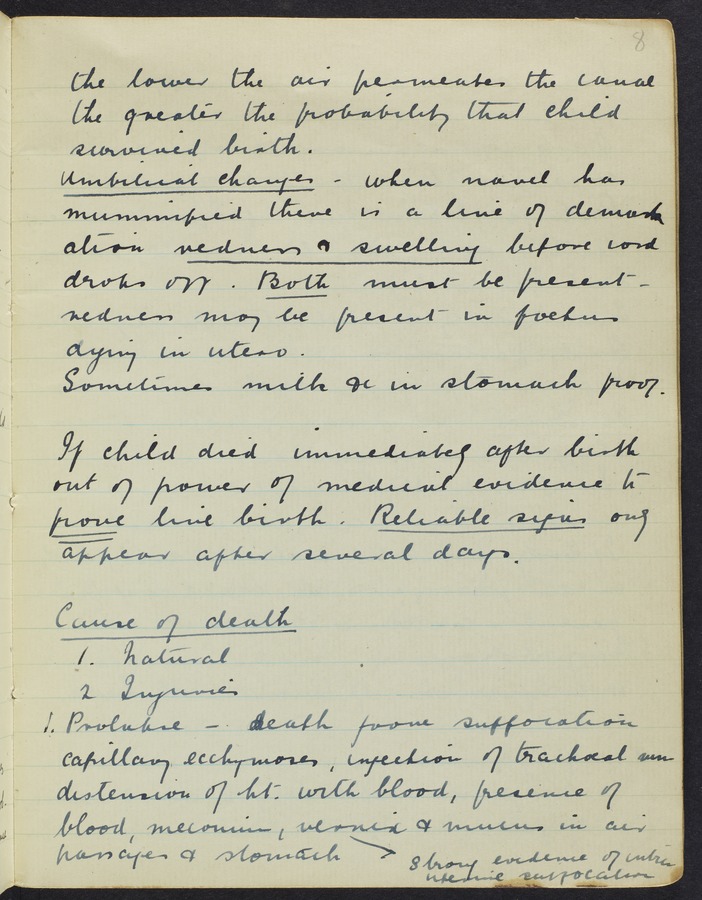 8
the lower the air permeates the canal
the greater the probability that child
survived birth.
Umbilical changes - when navel has
mummified there is a line of demark
ation redness & swelling before cord
drops off. Both must be present -
redness may be present in foetus
dying in utero.
Sometimes milk &c in stomach proof.
If child died immediately after birth
out of power of medical evidence to
prove live birth. Reliable signs only
appear after several days.
Cause of death
1. Natural
2 Injuries
1. Prolapse - death from suffocation
capillary ecchymoses, injection of tracheal mm
distension of ht. with blood, presence of
blood, meconium, vernix & mucus in air
passages & stomach
Strong evidence of intra
uterine suffocation